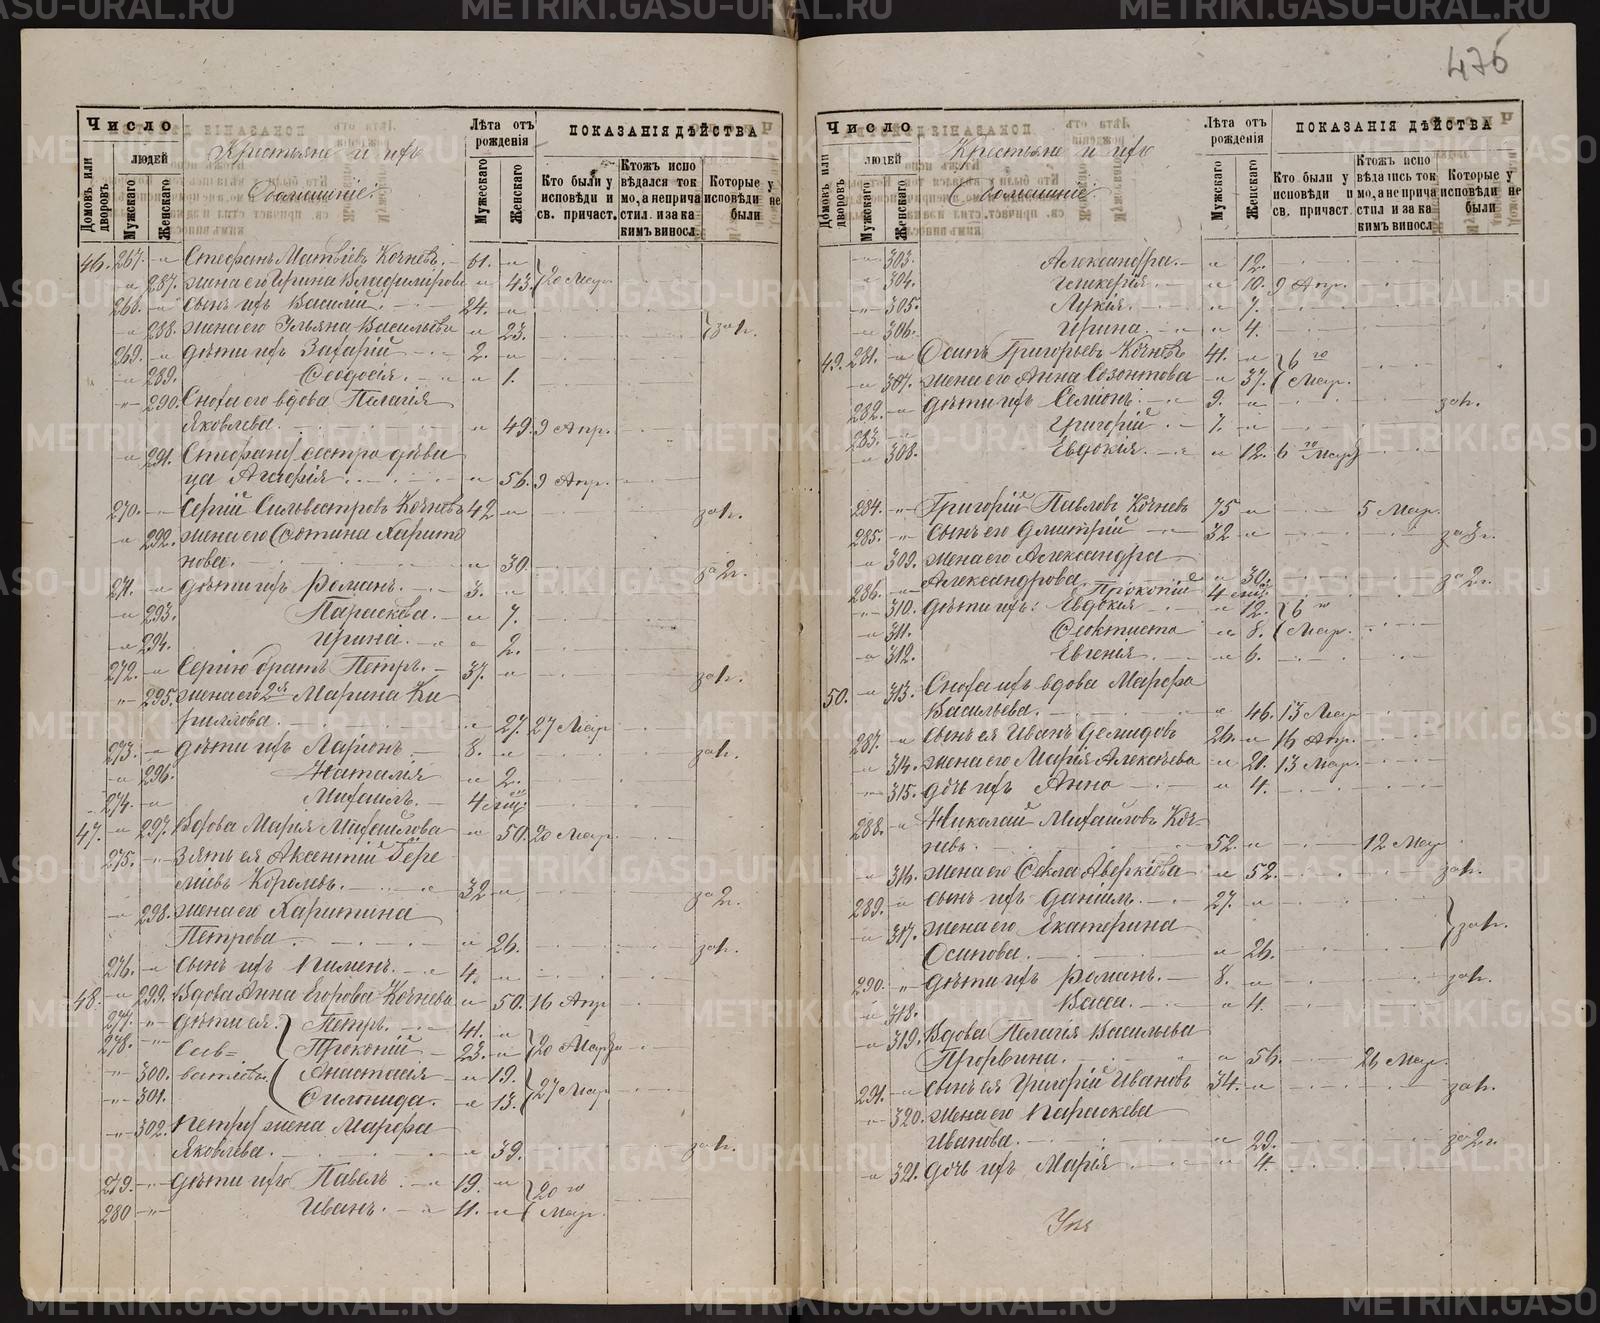 476
Число
Крестьяне и ихъ
Домашніе:
Лѣта отъ рожденія
ПОКАЗАНІЯ ДѢЙСТВА
Домовъ или дворовъ
людей
Мужскаго
Женскаго
Мужескаго
Женскаго
Кто были у исповѣди и св. причаст.
Ктожъ испо вѣдался ток мо, а неприча стил. и за ка кимъ виносл.
Которые у исповѣди не были
46. 267. Стефанъ Матвѣевъ Кочневъ. 61.
287. жена его Ирина Владимірова 43. 20 Мар.
268. сынъ ихъ Василій 24.
288. жена его Ульяна Васильева 23. за 1г.
269. дѣти ихъ Захарій 2.
289. Ѳеодосія. 1.
290. Сноха его вдова Пелагія
Яковлева. 49. 9 Апр.
291. Стефану сестра дѣви
ца Агафія 56. 9 Апр.
270. Сергій Сильвестровъ Кочневъ 42 за 1г.
292. жена его Харито
нова. 30. за 2г.
271. дѣти ихъ Романъ. 3.
293. Параскева. 7.
294. Ирина. 2.
272. Сергію братъ Петръ. 37. за 1г.
295. жена его 2я Марина Ки
риллова. 27. 27 Мар.
273. дѣти ихъ Ларіонъ. 8. за 1г.
296. Наталія 2.
274. Михаилъ. 4 мѣс.
47. 297. Вдова Марія Михайлова 50. 20 Мар.
275. Зять ея Авксентій Ѳере
Королевъ. 32 за 2г.
298. жена его Харитина
Петрова 26. за 1г.
276. сынъ ихъ Пименъ. 4.
48. 299. Вдова Анна Егорова Кочнева 50. 16 Апр.
277. дѣти ея: Петръ. 41.
278. Прокопій 23. 20 Мар.
300. Анастасія 19.
301. 13. 27 Мар.
302. Петру жена Марфа
Яковлева. 39. за 1г.
279. дѣти ихъ Павелъ 19. 20 го
280 Иванъ. 11. Мар.
Число
Крестьяне и ихъ
Домашніе:
Лѣта отъ рожденія
ПОКАЗАНІЯ ДѢЙСТВА
Домовъ или дворовъ
людей
Мужскаго
Женскаго
Мужскаго
Женскаго
Кто были у исповѣди и св. причаст.
Ктожъ испо вѣдались ток мо, а не прича стил и за ка кимъ виносл.
Которые у исповѣди не были
303. Александра. 12.
304. Гликерія 10. 9 Апр.
305. Лукія 7.
306. Ирина. 4.
49. 281. Осипъ Григорьевъ Кочневъ 41. 6 го
307. жена его Анна Созонтова 37. Мар.
282. дѣти ихъ Семіонъ. 9. за 1г.
283. Григорій 7.
308. Евдокія. 12. 6 го Мар.
284. Григорій Павловъ Кочневъ 75 5 Мар.
285. сынъ его Дмитрій 32 за 3г.
309. жена его Александра
Александрова. 30. за 2г.
286. Прокопій 4 мѣс.
310. дѣти ихъ: Евдокія 12. 6 го
311. Ѳеоктиста 8. Мар.
312. Евгенія. 6.
50. 313. Сноха ихъ вдова Марфа
Васильева. 46. 13 Мар.
287. сынъ ея Иванъ Демидовъ 26. 16 Апр.
314. жена его Марія Алексѣева 21. 13 Мар.
315. дочь ихъ Анна 4.
288. Николай Михайловъ Коч-
невъ. 52. 12 Мар.
316. жена его Ѳекла Аверкіева 52. за 1г.
289. сынъ ихъ Даніилъ. 27.
317. жена его Екатерина за 1г.
Осипова. 26.
290. дѣти ихъ Романъ. 8. за 1г.
318. Васса. 4.
319. Вдова Пелагія Васильева
56. 26 Мар.
291. сынъ ея Григорій Ивановъ 34. за 1г.
320. жена его Параскева
Иванова. 29. за 2г.
321. дочь ихъ Марія 4.